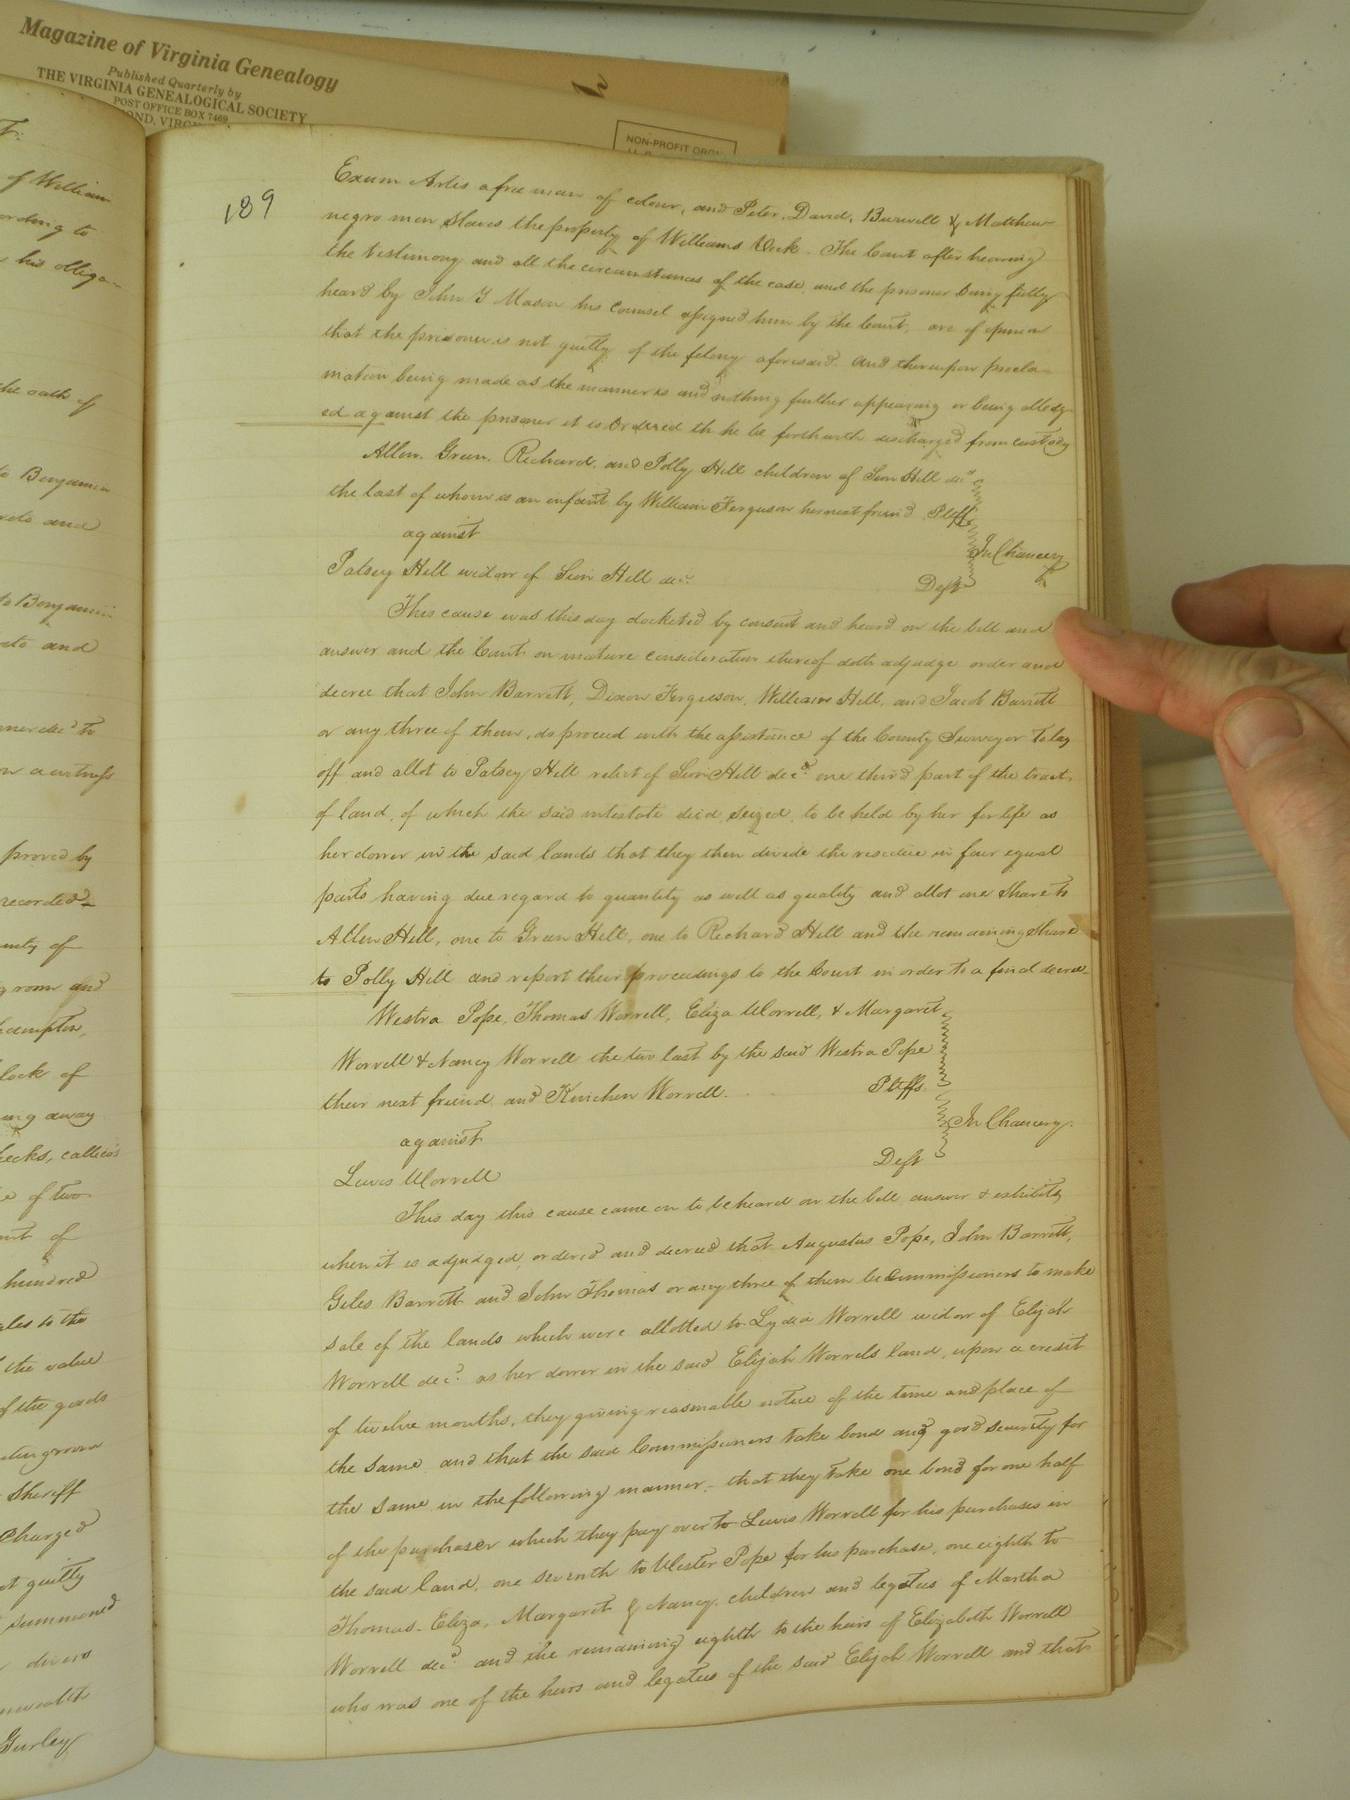 Magazine of Virginia Genealogy
Published Quarterly by
THE VIRGINIA GENEALOGICAL SOCIETY
POST OFFICE BOX 7469
NON-PROFIT ORG
189
Exum Artis a free man of colour, and Peter, David, Burwell & Matthew
negro men slaves the property of Williams Vick. The Court after hearing
the testimony and all the circumstances of the case, and the prisoner being fully
heard by John Y Mason his Counsel assigned him by the Court, are of opinion
that the prisoner is not guilty of the felony aforesaid. And thereupon procla-
mation being made as the manner is and nothing further appearing or being alledg-
ed against the prisoner it is Ordered th he be forthwith discharged from custody
Allen, Green, Richard, and Polly Hill children of Sion Hill decd
the last of whom is an infant by William Ferguson her next friend Pltffs
against
In Chancery
Patsey Hill widow of Sion Hill decd.
Deft
This cause was this day docketed by consent and heard on the bill and
answer and the Court on mature consideration thereof doth adjudge order and
decree that John Barrett, Dixon Ferguson, William Hill, and Jacob Barrett
or any three of them, do proceed with the assistance of the County Surveyor to lay
off and allot to Patsey Hill relict of Sion Hill decd. one third part of the tract
of land, of which the said intestate died seized, to be held by her for life as
her dower in the said lands that they then divide the residue in four equal
parts having due regard to quantity as well as quality and allot one share to
Allen Hill, one to Green Hill, one to Richard Hill and the remaining share
to Polly Hill and report their proceedings to the Court in order to a final decree
Westra Pope, Thomas Worrell, Eliza Worrell, & Margaret
Worrell & Nancy Worrell the two last by the said Westra Pope
their next friend and Kinchen Worrell. Pltffs.
against
In Chancery.
Deft
Lewis Worrell
This day this cause came on to be heard on the bill answer & exhibits,
when it is adjudged, ordered and decreed that Augustus Pope, John Barrett,
Giles Barrett and John Thomas or any three of them be Commissioners to make
sale of the lands which were allotted to Lydia Worrell widow of Elijah
Worrell decd. as her dower in the said Elijah Worrels land, upon a credit
of twelve months, they giving reasonable notice of the time and place of
the same and that the said Commissioners take bond and good security for
the same in the following manner, that they take one bond for one half
of the purchaser which they pay over to Lewis Worrell for his purchases in
the said land, one seventh to Wester Pope for his purchase, one eighth to
Thomas, Eliza, Margaret & Nancy, children and legatees of Martha
Worrell decd. and the remaining eighth to the heirs of Elizabeth Worrell
who was one of the heirs and legatees of the said Elijah Worrell and that